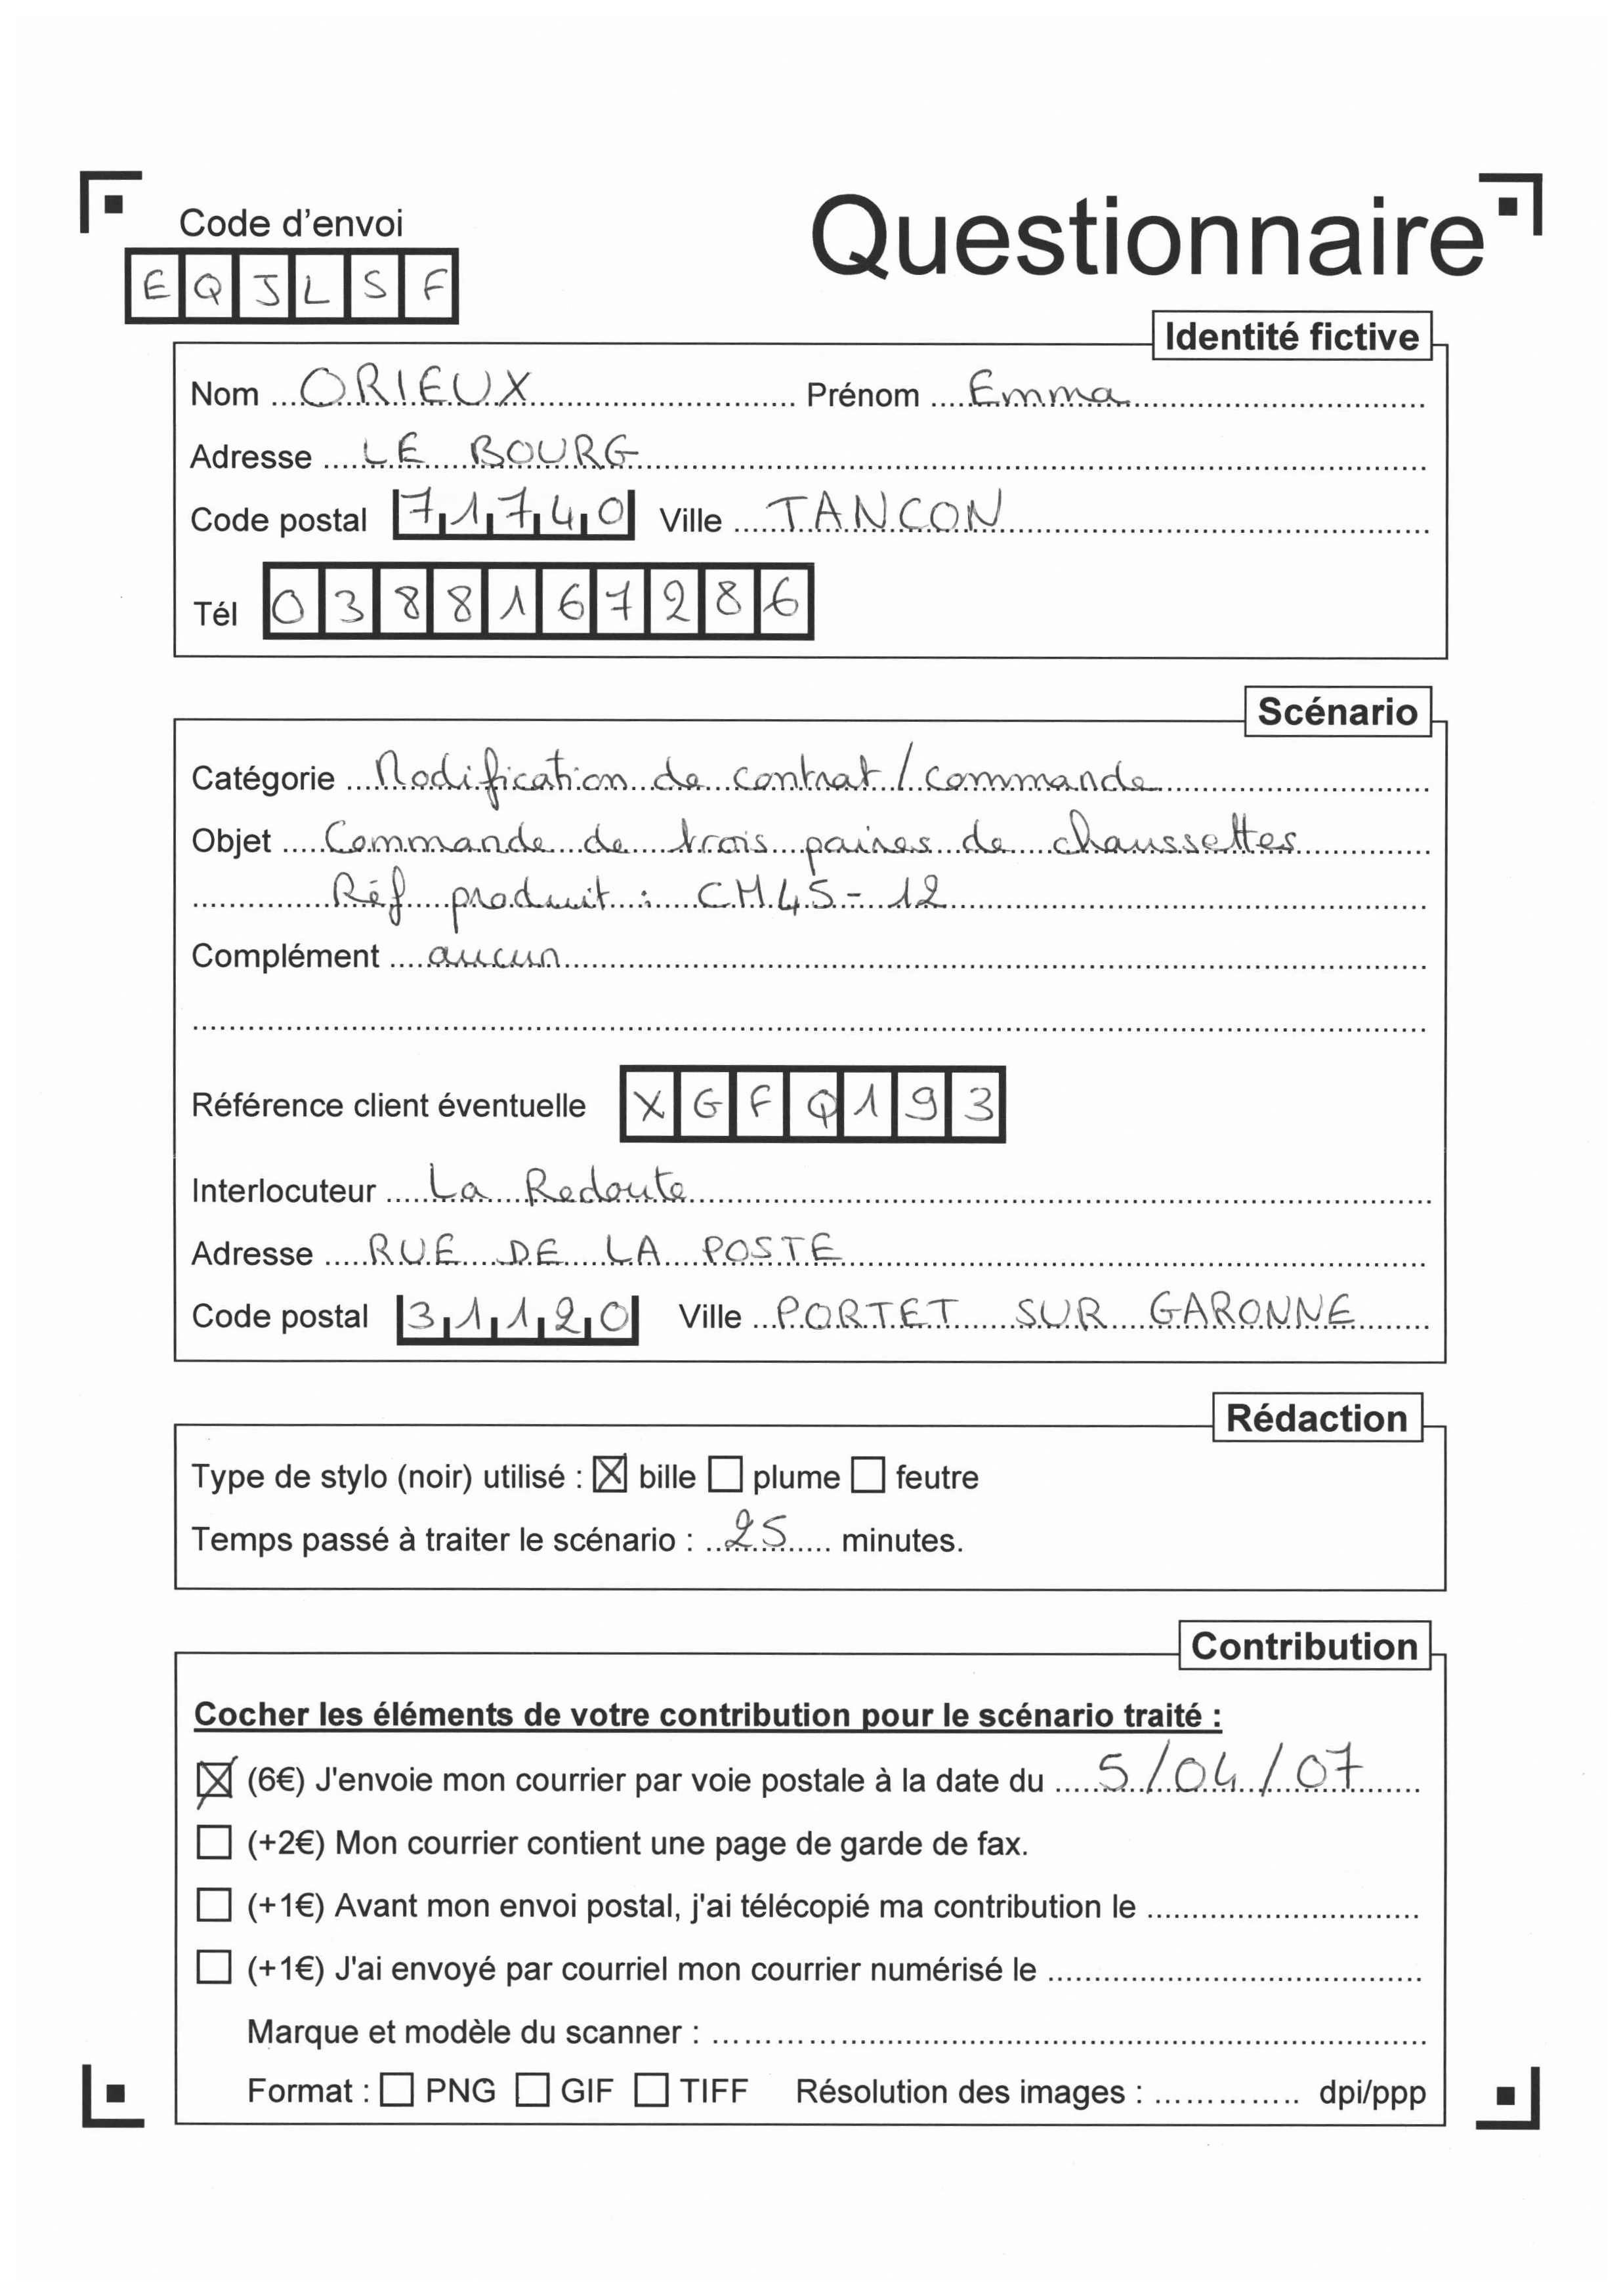 Code d'envoi
Questionnaire
E Q J L S F
Identité fictive
Nom ORIEUX Prénom Emma
Adresse LE BOURG
Code postal 71740 Ville TANCON
Tél 0388167286
Scénario
Catégorie Modification de contrat / commande
Objet Commande de trois paires de chaussettes
Réf produit : CH45-12
Complément aucun
Référence client éventuelle X G F Q 1 9 3
Interlocuteur La Redoute
Adresse RUE DE LA POSTE
Code postal 31120 Ville PORTET SUR GARONNE
Rédaction
Type de stylo (noir) utilisé : ☒ bille ☐ plume ☐ feutre
Temps passé à traiter le scénario : 25 minutes.
Contribution
Cocher les éléments de votre contribution pour le scénario traité :
☒ (6€) J'envoie mon courrier par voie postale à la date du 5/04/07
☐ (+2€) Mon courrier contient une page de garde de fax.
☐ (+1€) Avant mon envoi postal, j'ai télécopié ma contribution le ..............................
☐ (+1€) J'ai envoyé par courriel mon courrier numérisé le ..............................
Marque et modèle du scanner : ..............................
Format : ☐ PNG ☐ GIF ☐ TIFF Résolution des images : .............. dpi/ppp